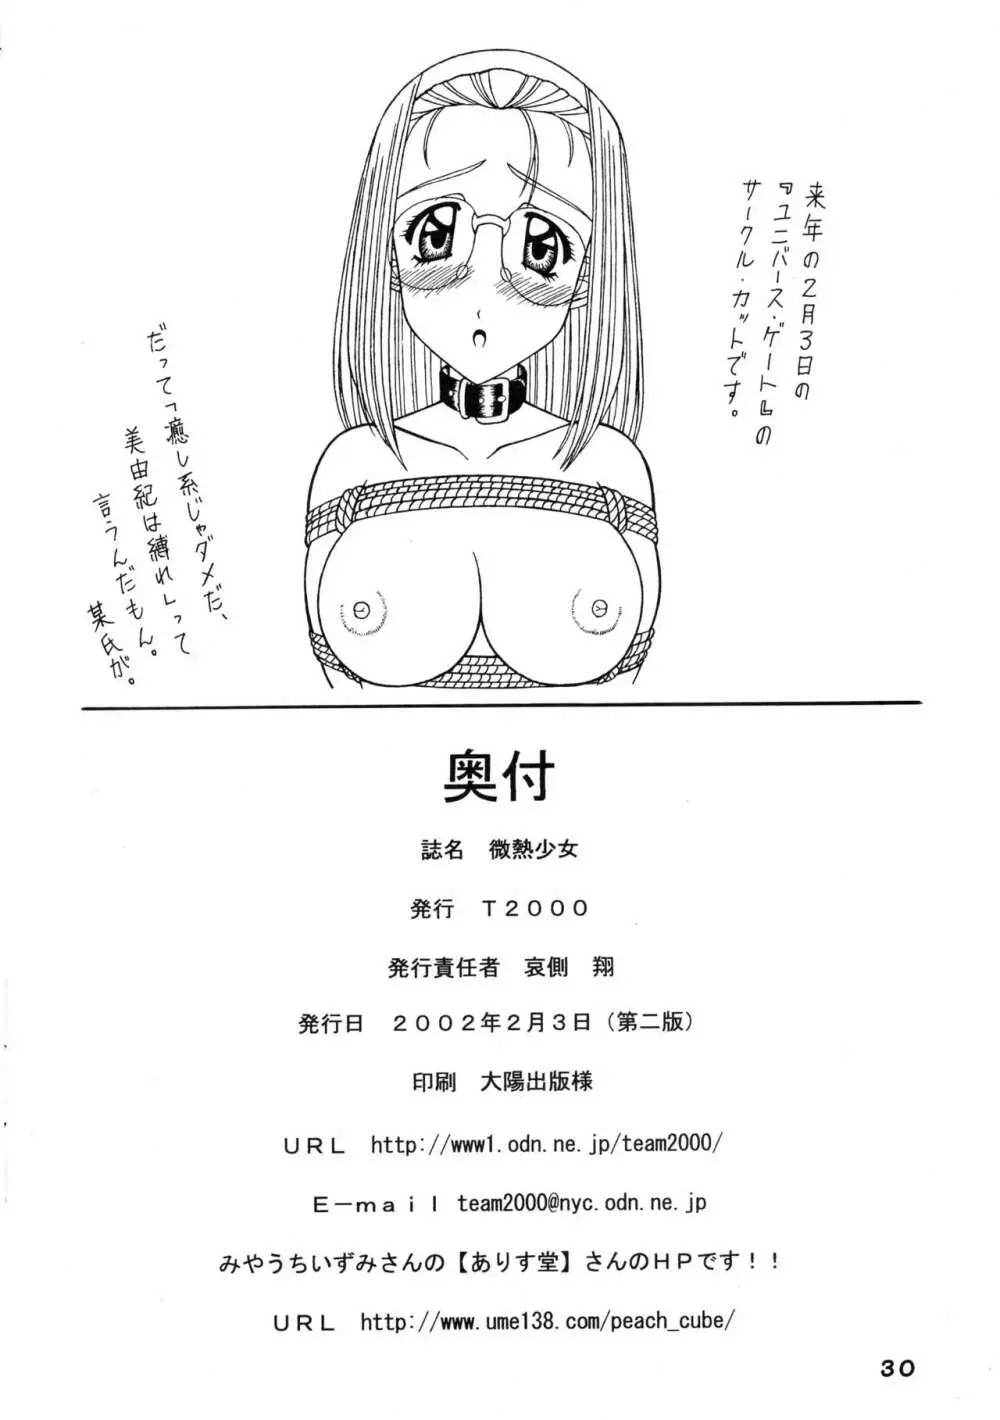 来年の2月3日の
『ユニバース・ゲート』の
サークル・カットです。
だって「癒し系じゃダメだ、
美由紀は縛れ」って
言うんだもん。
某氏が。
奥付
誌名　微熱少女
発行　Ｔ２０００
発行責任者　哀側　翔
発行日　２００２年２月３日（第二版）
印刷　大陽出版様
ＵＲＬ　http://www1.odn.ne.jp/team2000/
Ｅ－ｍａｉｌ team2000@nyc.odn.ne.jp
みやうちいずみさんの【ありす堂】さんのＨＰです！！
ＵＲＬ　http://www.ume138.com/peach_cube/
30